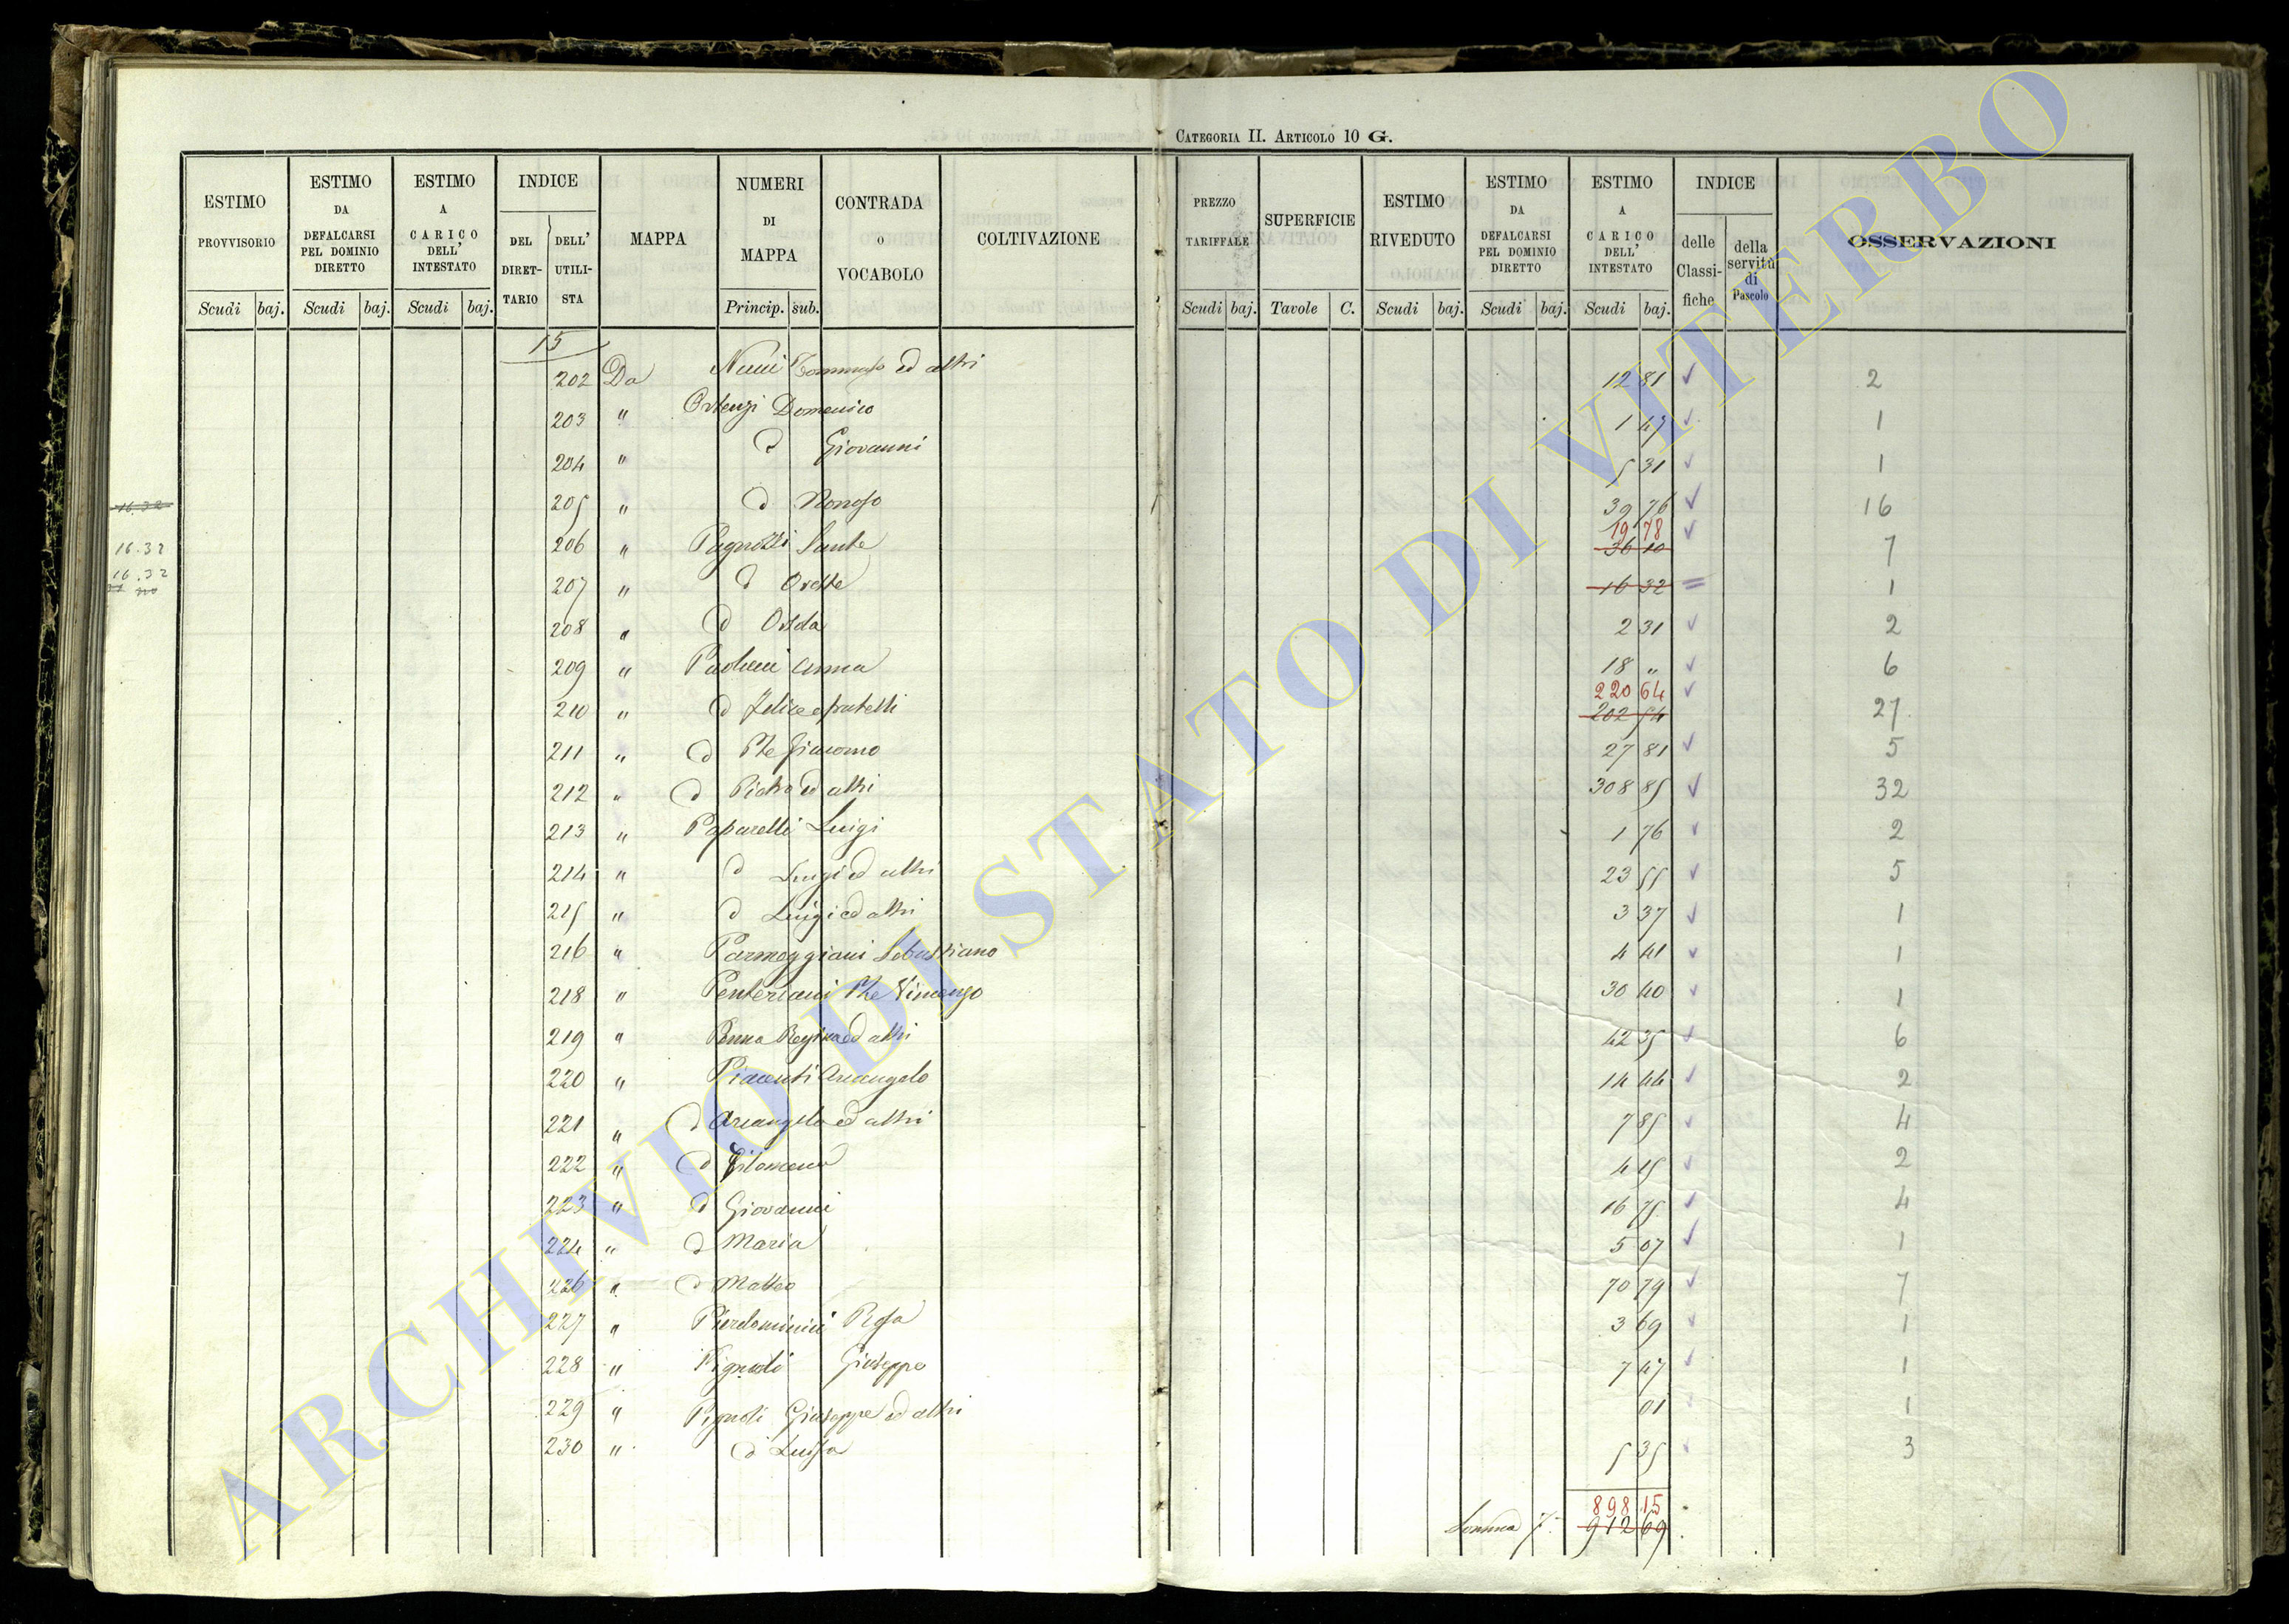 CATEGORIA II. ARTICOLO 10 G.
ESTIMO PROVVISORIO
ESTIMO DA DEFALCARSI PEL DOMINIO DIRETTO
ESTIMO A CARICO DELL' INTESTATO
INDICE
DEL DIRETTARIO
DELL' UTILISTA
MAPPA
NUMERI DI MAPPA
CONTRADA O VOCABOLO
COLTIVAZIONE
PREZZO TARIFFALE
SUPERFICIE
ESTIMO RIVEDUTO
ESTIMO DA DEFALCARSI PEL DOMINIO DIRETTO
ESTIMO A CARICO DELL' INTESTATO
INDICE
delle Classifiche
della servitù di Pascolo
OSSERVAZIONI
Scudi baj. Scudi baj. Scudi baj. Princip. sub. Scudi baj. Tavole C. Scudi baj. Scudi baj. Scudi baj.
15
202 Da Nucci Tommaso ed altri 12 81 2
203 " Ortenzi Domenico 1 47 1
204 " d Giovanni 5 31 1
16.32
205 " d Nonoso 39 76 16
19 78
16.32
206 " Pagnotti Sante 36 10 7
16.32
207 " d Oreste 16 32 1
208 " d Ovida 2 31 2
209 " Paolucci Anna 18 " 6
220 64
210 " d Felice e fratelli 202 54 27
211 " d Pte Giacomo 27 81 5
212 " d Pietro ed altri 308 85 32
213 " Paparelli Luigi 1 76 2
214 " d Luigi ed altri 23 55 5
215 " d Luigi ed altri 3 37 1
216 " Parmeggiani Sebastiano 4 41 1
218 " Penteriani Pte Vincenzo 30 40 1
219 " Penna Regina ed altri 42 35 6
220 " Piacenti Arcangelo 14 44 2
221 " d Arcangelo ed altri 7 85 4
222 " d Filomena 4 15 2
223 " d Giovanni 16 75 4
224 " d Maria 5 07 1
226 " d Matteo 70 79 7
227 " Pierdominici Rosa 3 69 1
228 " Pignoli Giuseppe 7 47 1
229 " Pignoli Giuseppe ed altri 01 1
230 " d Luisa 5 35 3
898 15
Somma 912 69
ARCHIVIO DI STATO DI VITERBO